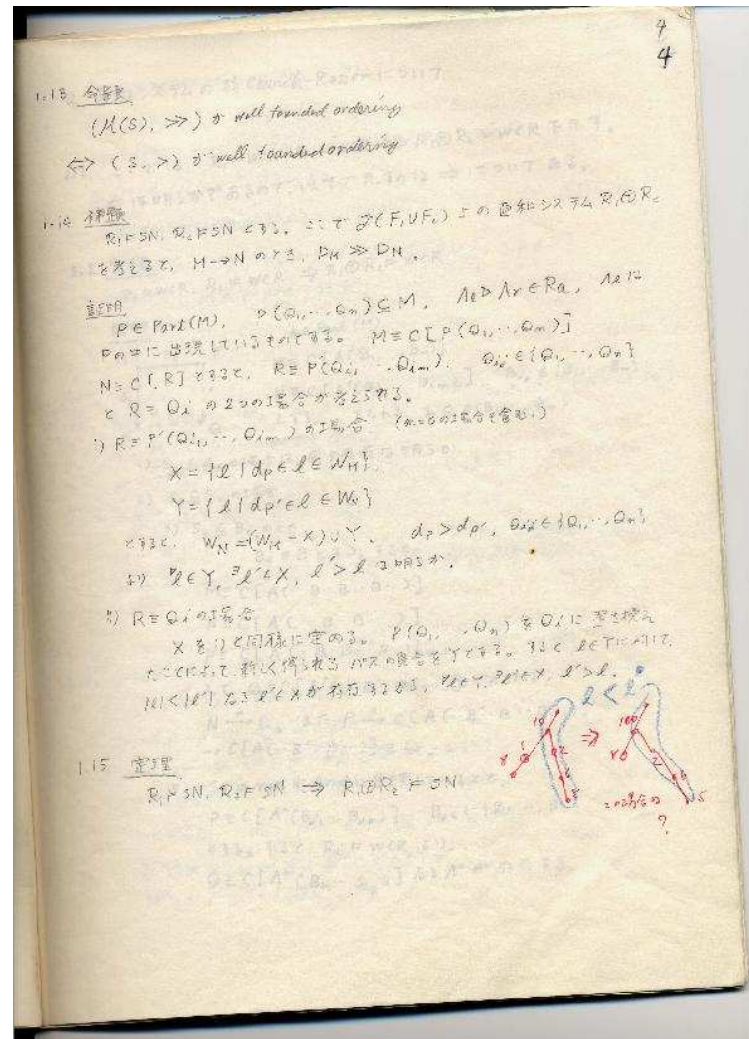 4
4
1.13 命題
(M(S), ≫) が well founded ordering
⇔ (S, >) が well founded ordering
1.14 補題
R₁⊨SN, R₂⊨SN とする。ここで 𝒯(F₁∪F₂) 上の直和システム R₁⊕R₂
を考えると、M→N のとき、D_M ≫ D_N.
証明
P∈Part(M), P(Q₁,…,Qₙ)⊆M, Λℓ▷Λr∈Ra, Λℓは
Pの中に出現しているものとする。 M≡C[P(Q₁,…,Qₙ)]
N≡C[R] とすると、R≡P'(Qi₁,…,Qiₘ), Qij∈{Q₁,…,Qₙ}
と R≡Qi の2つの場合が考えられる。
i) R≡P'(Qi₁,…,Qiₘ) の場合 (m=0の場合を含む。)
X={ℓ | dp∈ℓ∈W_M}
Y={ℓ | dp'∈ℓ∈W_N}
とすると、 W_N=(W_M−X)∪Y. dp>dp', Qij∈{Q₁,…,Qₙ}
より ∀ℓ∈Y, ∃ℓ'∈X, ℓ'>ℓ は明らか.
ii) R≡Qi の場合
X を i)と同様に定める。 P(Q₁,…,Qₙ) を Qi に置き換え
たことによって、新しく得られるパスの集合をYとする。すると ℓ∈Yに対して、
|ℓ|<|ℓ'| なる ℓ'∈X が存在するから、∀ℓ∈Y, ∃ℓ'∈X, ℓ'>ℓ.
ℓ < ℓ'
10 1 8 2 3 ⇒ 100 2 5
この場合は
?
1.15 定理
R₁⊨SN, R₂⊨SN ⇒ R₁⊕R₂⊨SN